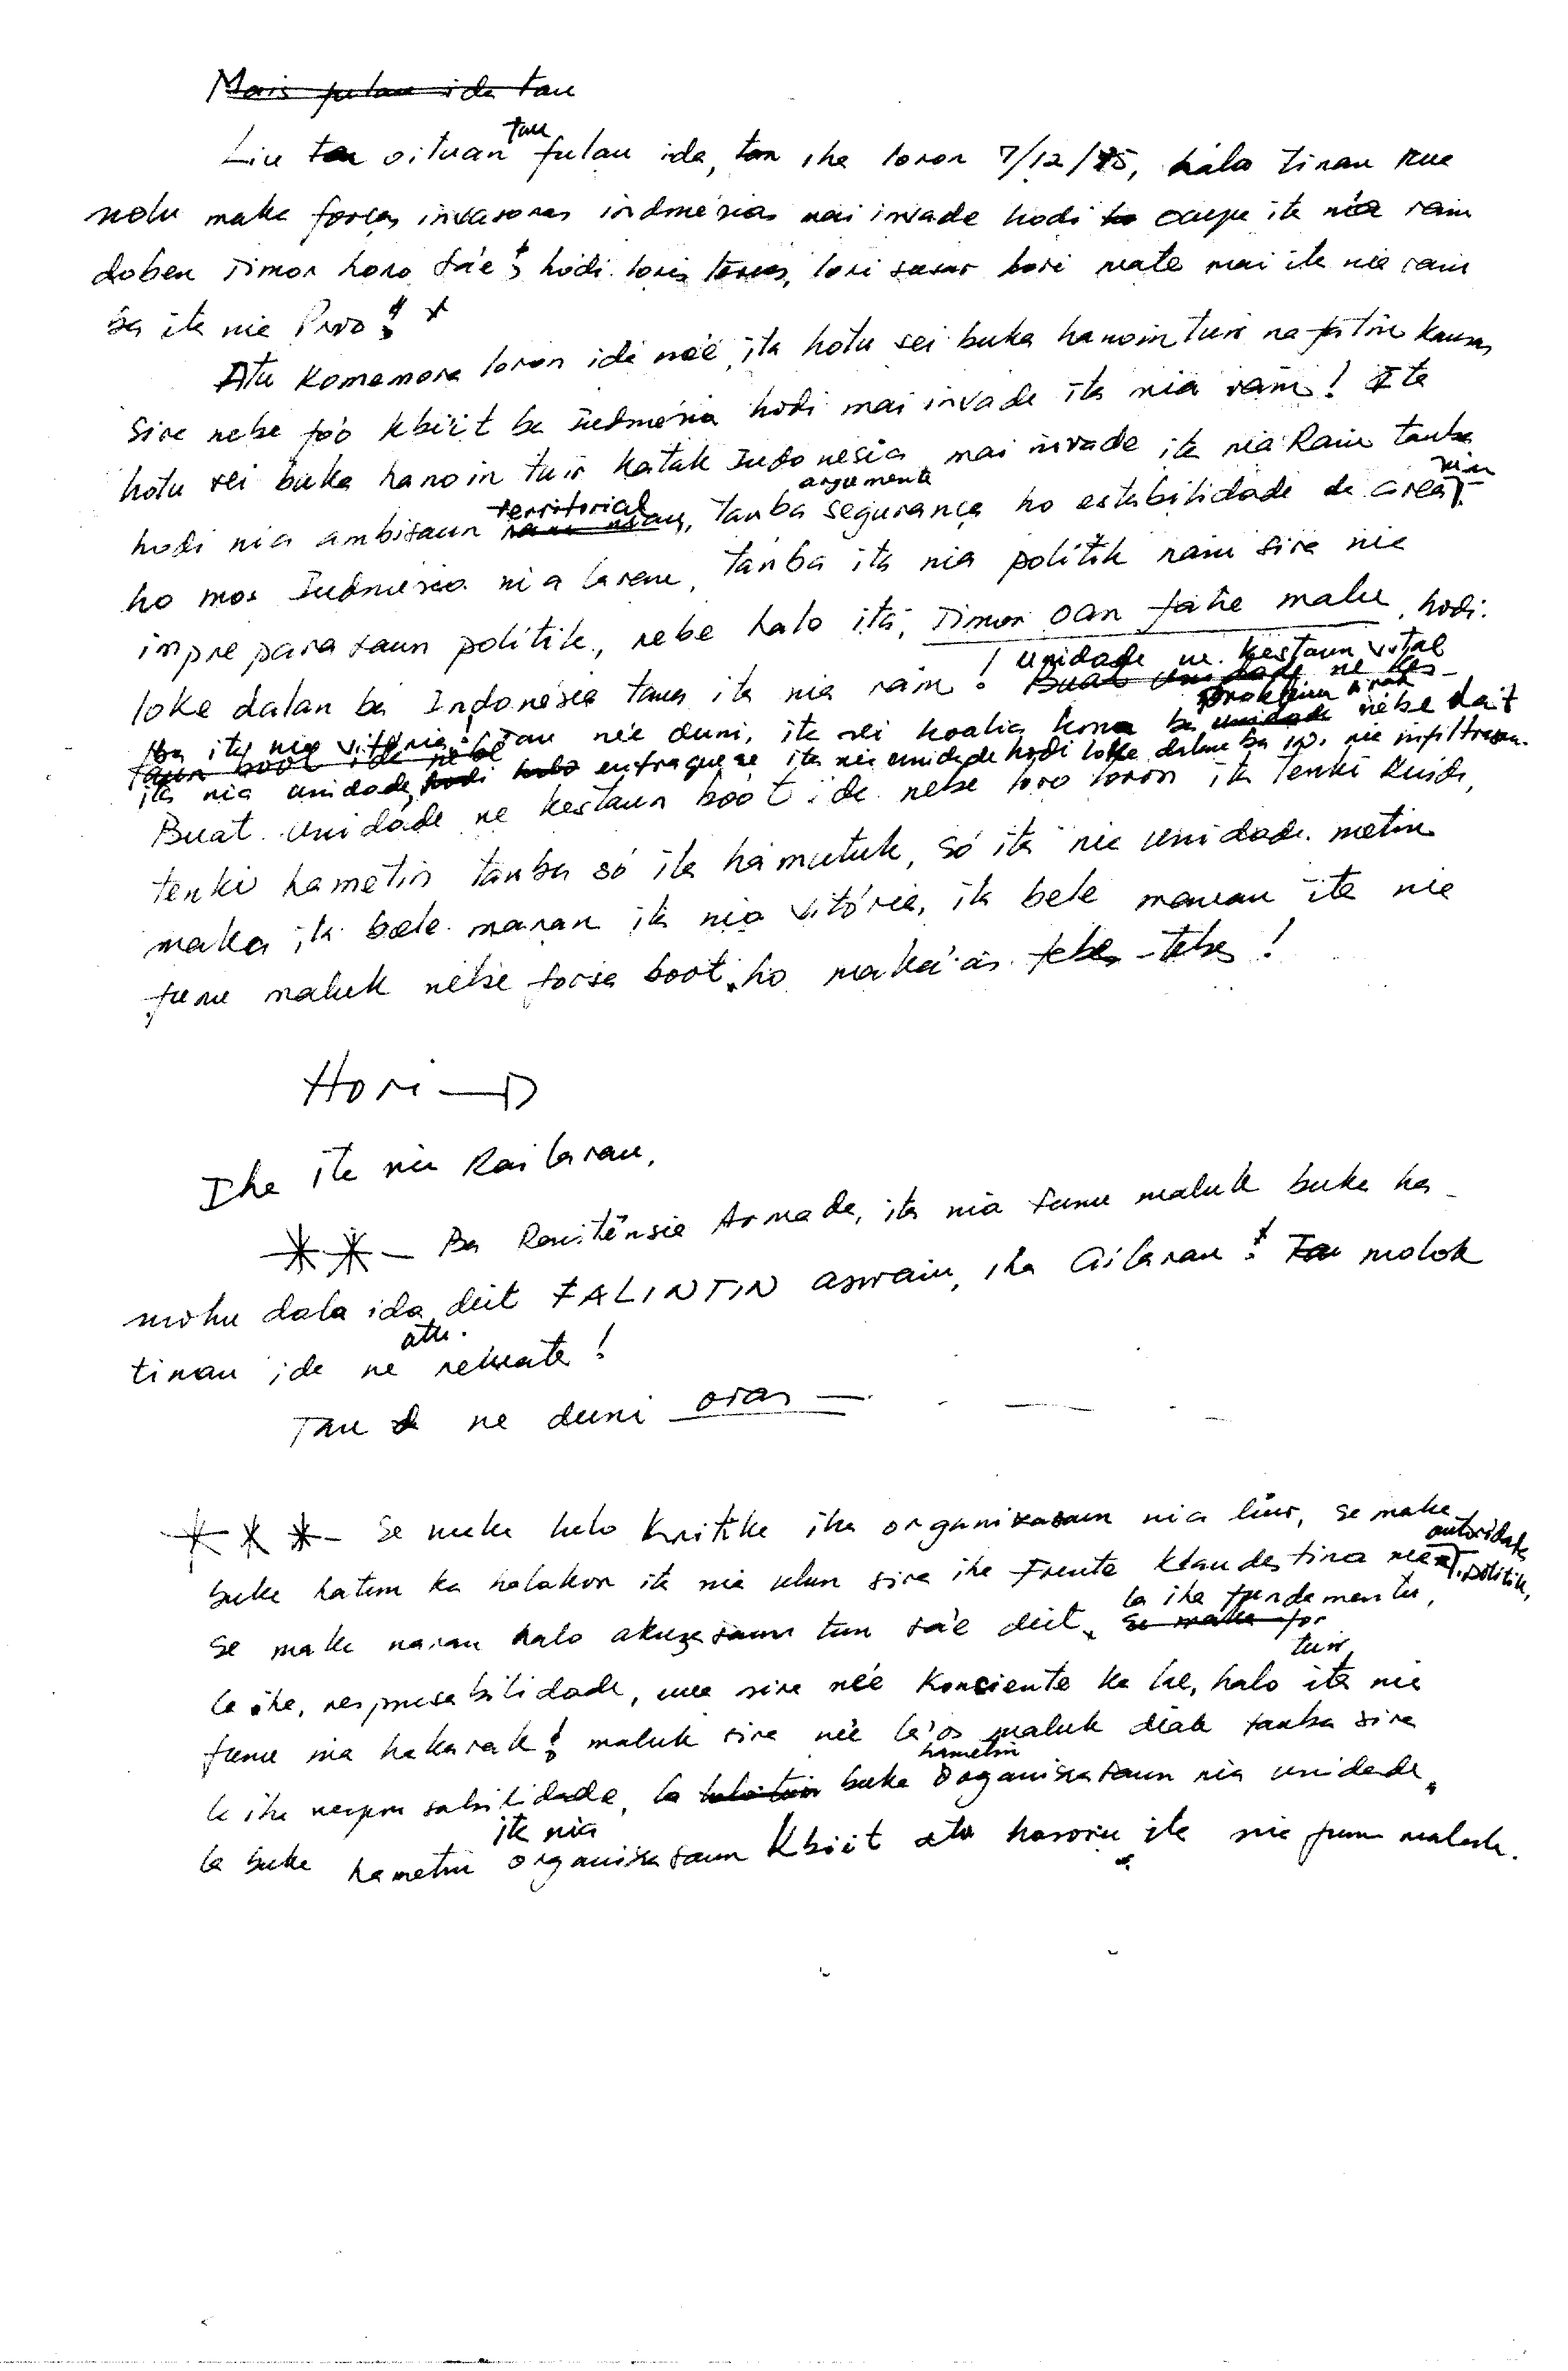 Mais fulan ida tan
Liu tan oituan tan fulan ida, tan iha loron 7/12/75, halo tinan rua
nolu maka forças invasoras indonésias mai invade hodi ocupa ita nia rain
doben Timor horo sa'e! hodi loris terus, lori susar hori mate mai ita nia rain
ba ita nia Povo!
Atu komemora loron ida ne'e, ita hotu sei buka hanoin tuir nafatin kausas
sira nebe fó'o kbiit ba Indonésia hodi mai invade ita nia rain! Ita
hotu sei buka hanoin tuir katak Indonesia mai invade ita nia Rain tanba
hodi nia ambisaun territorial, tanba argumento segurança ho estabilidade de area nian
ho mos Indonésia nia laran, tanba ita nia politik rain sira nia
inpreparasaun politik, nebe halo ita, Timor oan fahe malu, hodi
loke dalan ba Indonésia tama ita nia rain! Unidade ne kestaun vital
Buat unidade ne kes-
ba ita nia vitória! Tan ne'e duni, ita sei koalia kona ba unidade nebe dait
taun boot ida nebe
ita nia unidade, hodi halo enfraquese ita nia unidade hodi loke dalan ba in. nia infiltrasaun.
Buat unidade ne kestaun boot ida nebe loro loron ita tenki kuida,
tenki hametin tanba só ita hamutuk, só ita nia unidade metin
maka ita bele manan ita nia vitória, ita bele manan ita nia
funu maluk nebe forsa boot ho maka'as tebes-tebes!
Hori
Iha ita nia Rai laran,
Ba Resistênsia Armada, ita nia funu maluk buka ha-
mohu dala ida deit FALINTIN aswain, iha Ailaran! Tan molok
tinan ida ne atu remata!
Tan ne duni oras
Se maka halo kritika iha organizasaun nia liur, se maka
buka hatun ka halakon ita nia ulun sira iha Frente Klandestina nia autoridade politik,
se maka naran halo akuzasaun tun sa'e deit, la iha fundamentu,
se maka for
la iha responsabilidade, ema sira ne'e konsiente ka lae, halo tuir ita nia
funu nia hakarak! maluk sira ne'e la'os maluk diak tanba sira
la iha responsabilidade, la buka hametin organizasaun nia unidade,
la buka hametin ita nia organizasaun kbiit atu hasoru ita nia funu maluk.